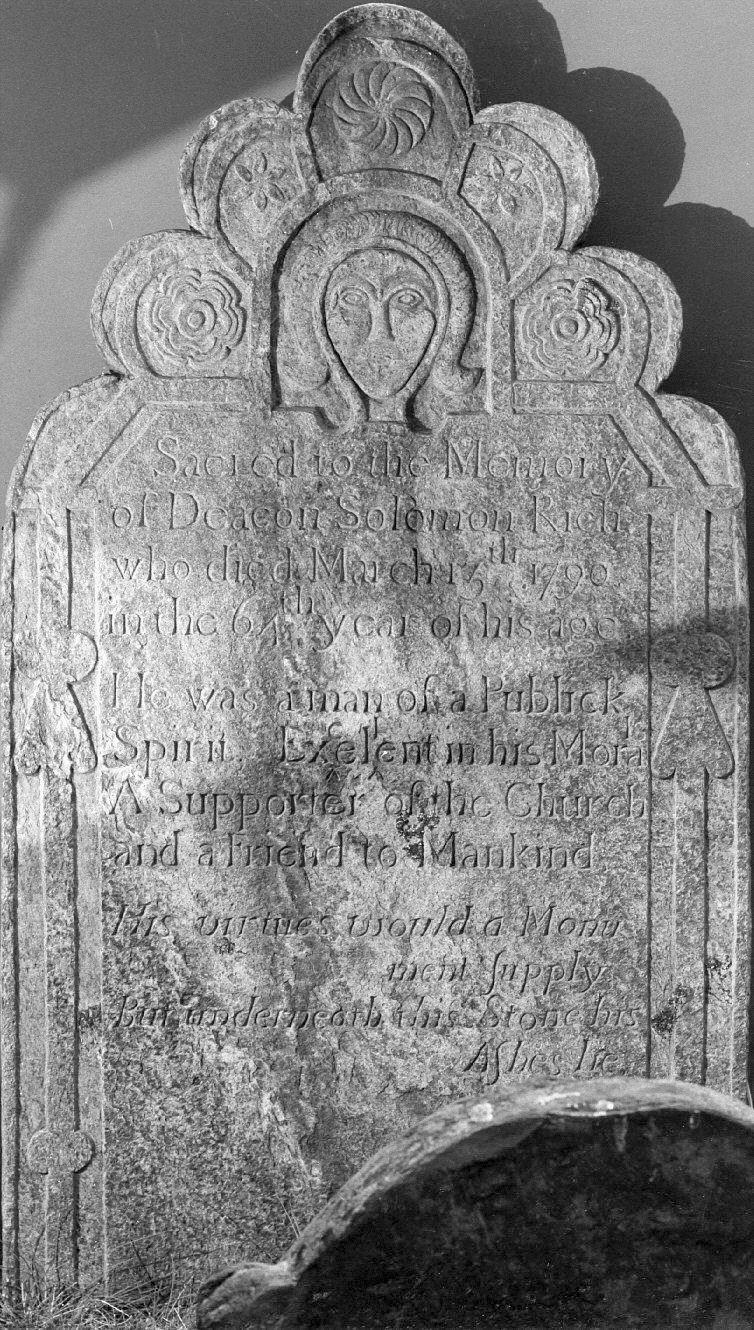 Sacred to the Memory
of Deacon Solomon Rich
who died March 1790
in the 64th year of his age
He was a man of a Publick
Spirit, Excelent in his Moral
A Supporter of the Church
and a Friend to Mankind
His virtues would a Monu
ment ſupply
But underneath this Stone his
Aſhes lie